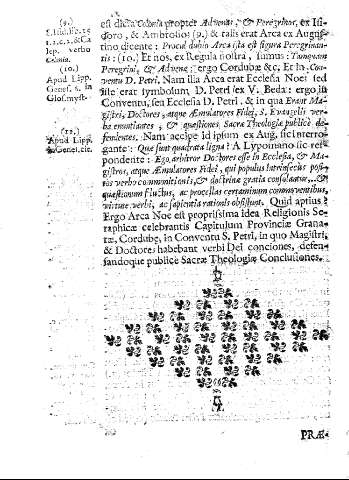 (9.)
S. Isid. li. 15
1. a. c. 2. & Ca
lep. verbo
Colonia.
(10.)
Apud Lipp.
Genes. 6. in
Glos. myst.
(11.)
Apud Lipp.
in Genes. cit.
est dicta Colonia propter Advenas, & Peregrinos, ex Isi-
doro, & Ambrosio (9.) & talis erat Arca ex Augus-
tino dicente: Procul dubio Arca ista est figura Peregrinan-
tis: (10.) Et nos, ex Regula nostra, sumus: Tanquam
Peregrini, & Advenæ: ergo Cordubæ &c. Et in Con-
ventu D. Petri, Nam illa Arca erat Ecclesia Noei sed
iste erat symbolum D. Petri (ex V. Beda: ergo in
Conventu, seu Ecclesia D. Petri, & in qua Erant Ma-
gistri, Doctores, atque Æmulatores Fidei, S. Evangelij ver-
ba enuntiantes, & quæstiones Sacræ Theologiæ publicè de-
fendentes. Nam accipe id ipsum ex Aug. sic interro-
gante: Quæ sunt quadrata ligna? A Lypomano sic re-
pondente: Ego arbitror Doctores esse in Ecclesia, & Ma-
gistros, atque Æmulatores Fidei, qui populus intrinsecus posi-
tos verbo communitionis, & doctrinæ gratia consolantur, &
quæstionum fluctus, ac procellas certaminum commoventibus,
virtute verbi, ac sapientiæ rationis obsistunt. Quid aptius?
Ergo Arca Noe est proprissima idea Religionis Se-
raphicæ celebrantis Capitulum Provinciæ Grana-
tæ, Cordubę, in Conventu S. Petri, in quo Magistri,
& Doctores habebant verbi Dei conciones, defen-
sandoque publicè Sacræ Theologiæ Conclusiones.
PRÆ-